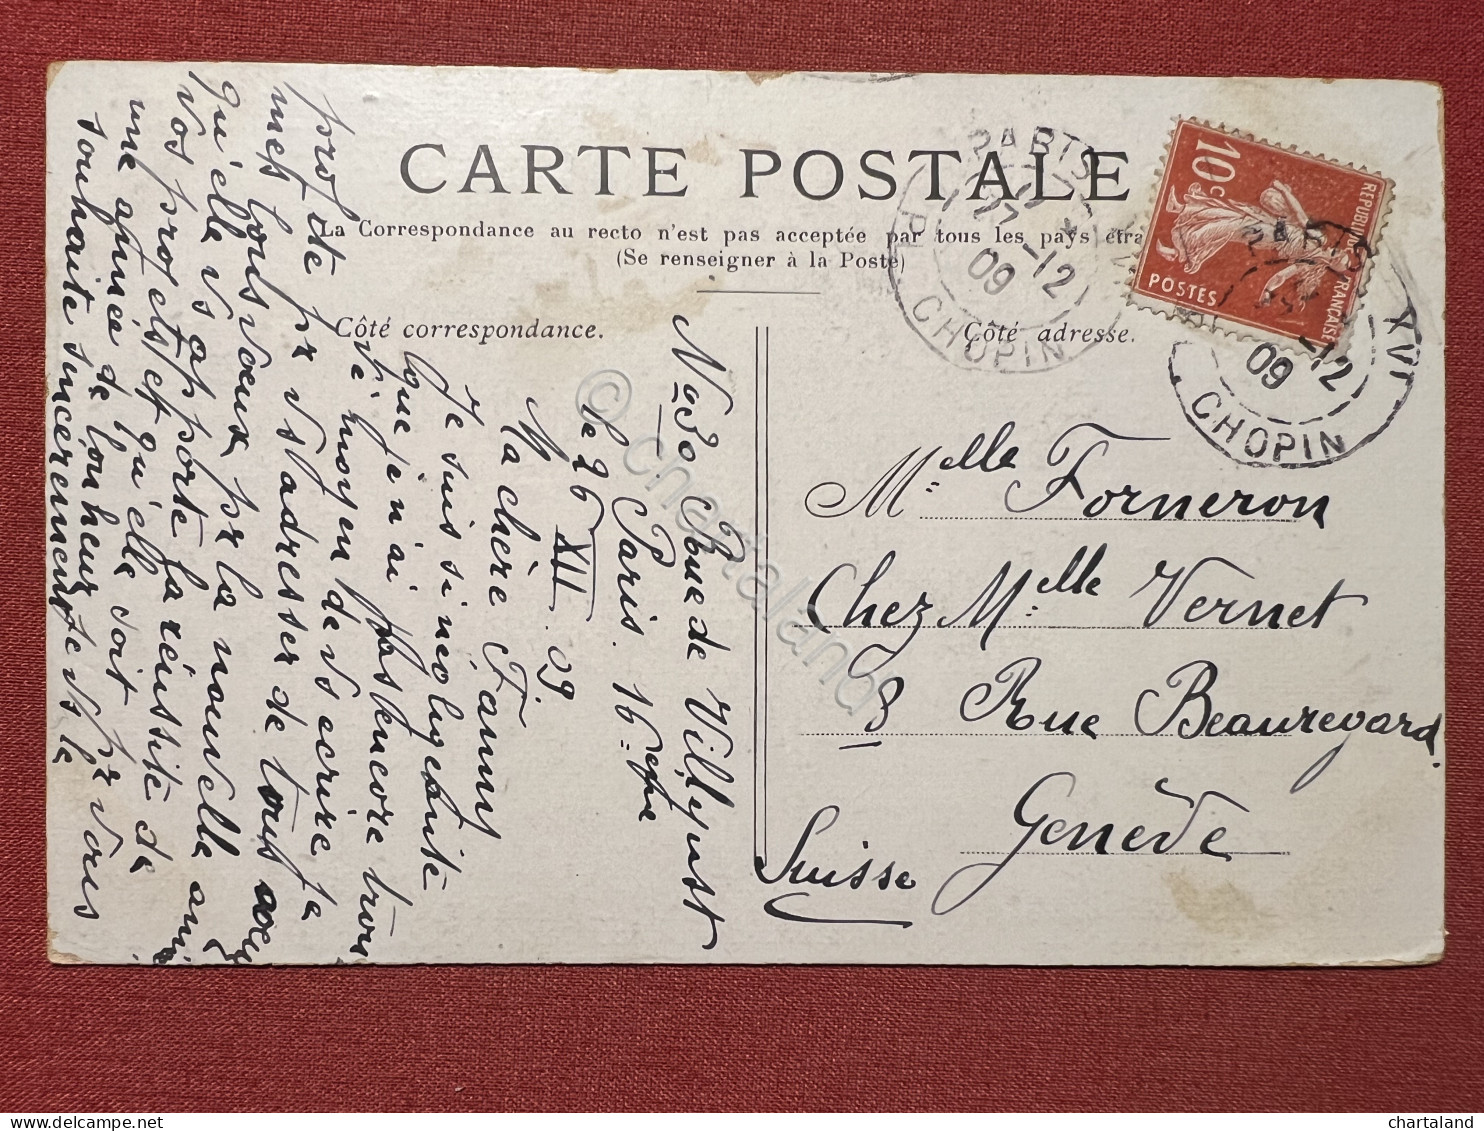 CARTE POSTALE
La Correspondance au recto n'est pas acceptée par tous les pays étra
(Se renseigner à la Poste)
Côté correspondance.
Côté adresse.
10c
REPUBLIQUE FRANÇAISE
POSTES
PARIS XVI
27 -12
09
PL. CHOPIN
PARIS XVI
-12
09
CHOPIN
No 30 Rue de Villejust
Paris. 16
le 26 XII. 09.
Ma chère Fanny
Je suis si négligente
que je n'ai pas encore trouvé
le moyen de vs ecrire. Je
profite pr vs adresser de tous
mes bons vœux pr la nouvelle année
qu'elle vs apporte la réussite de
vos projets et qu'elle soit pr vous
une année de bonheur je vs le
souhaite sincerement
Melle Forneron
Chez Melle Vernet
8 Rue Beauregard
Genève
Suisse
© chartaland
chartaland
delcampe.net